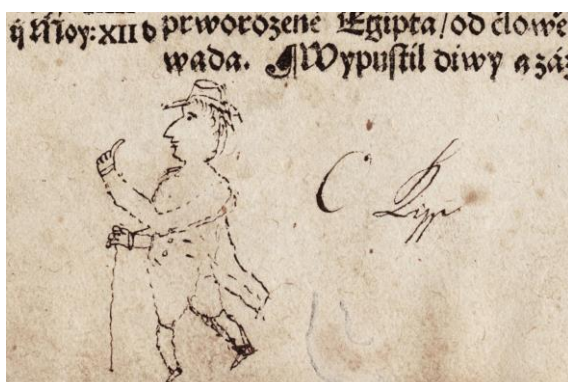 ij Moy: XII b prworozene Egipta / od cłowe
wada. ¶ Wypustil diwy a záz
C